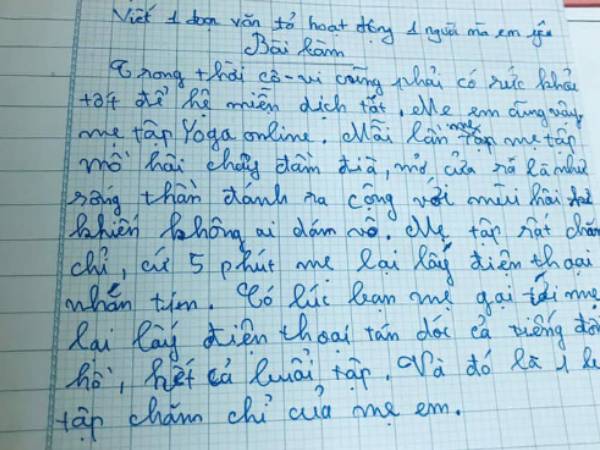 Viết 1 đoạn văn tả hoạt động 1 người mà em yêu
Bài làm
Trong thời cô-vi cũng phải có sức khỏe
tốt để hệ miễn dịch tốt. Mẹ em cũng vậy
mẹ tập Yoga online. Mỗi lần mẹ tập
mồ hôi chảy đầm đìa, mở cửa ra là như
sóng thần đánh ra cộng với mùi hôi
khiến không ai dám vô. Mẹ tập rất chăm
chỉ, cứ 5 phút mẹ lại lấy điện thoại
nhắn tin. Có lúc bạn mẹ gọi tới mẹ
lại lấy điện thoại tán dóc cả tiếng đồng
hồ, hết cả buổi tập. Và đó là 1
tập chăm chỉ của mẹ em.